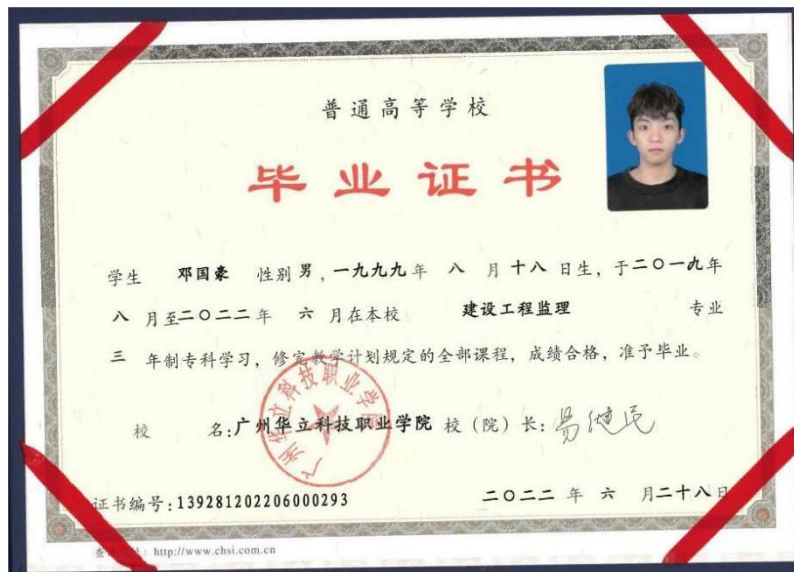 普通高等学校
毕业证书
学生 邓国豪 性别 男，一九九九年 八 月 十八 日生，于二〇一九年
八 月至二〇二二年 六 月在本校 建设工程监理 专业
三 年制专科学习，修完教学计划规定的全部课程，成绩合格，准予毕业。
校 名：广州华立科技职业学院 校（院）长：
广州华立科技职业学院
证书编号：139281202206000293 二〇二二 年 六 月二十八日
http://www.chsi.com.cn